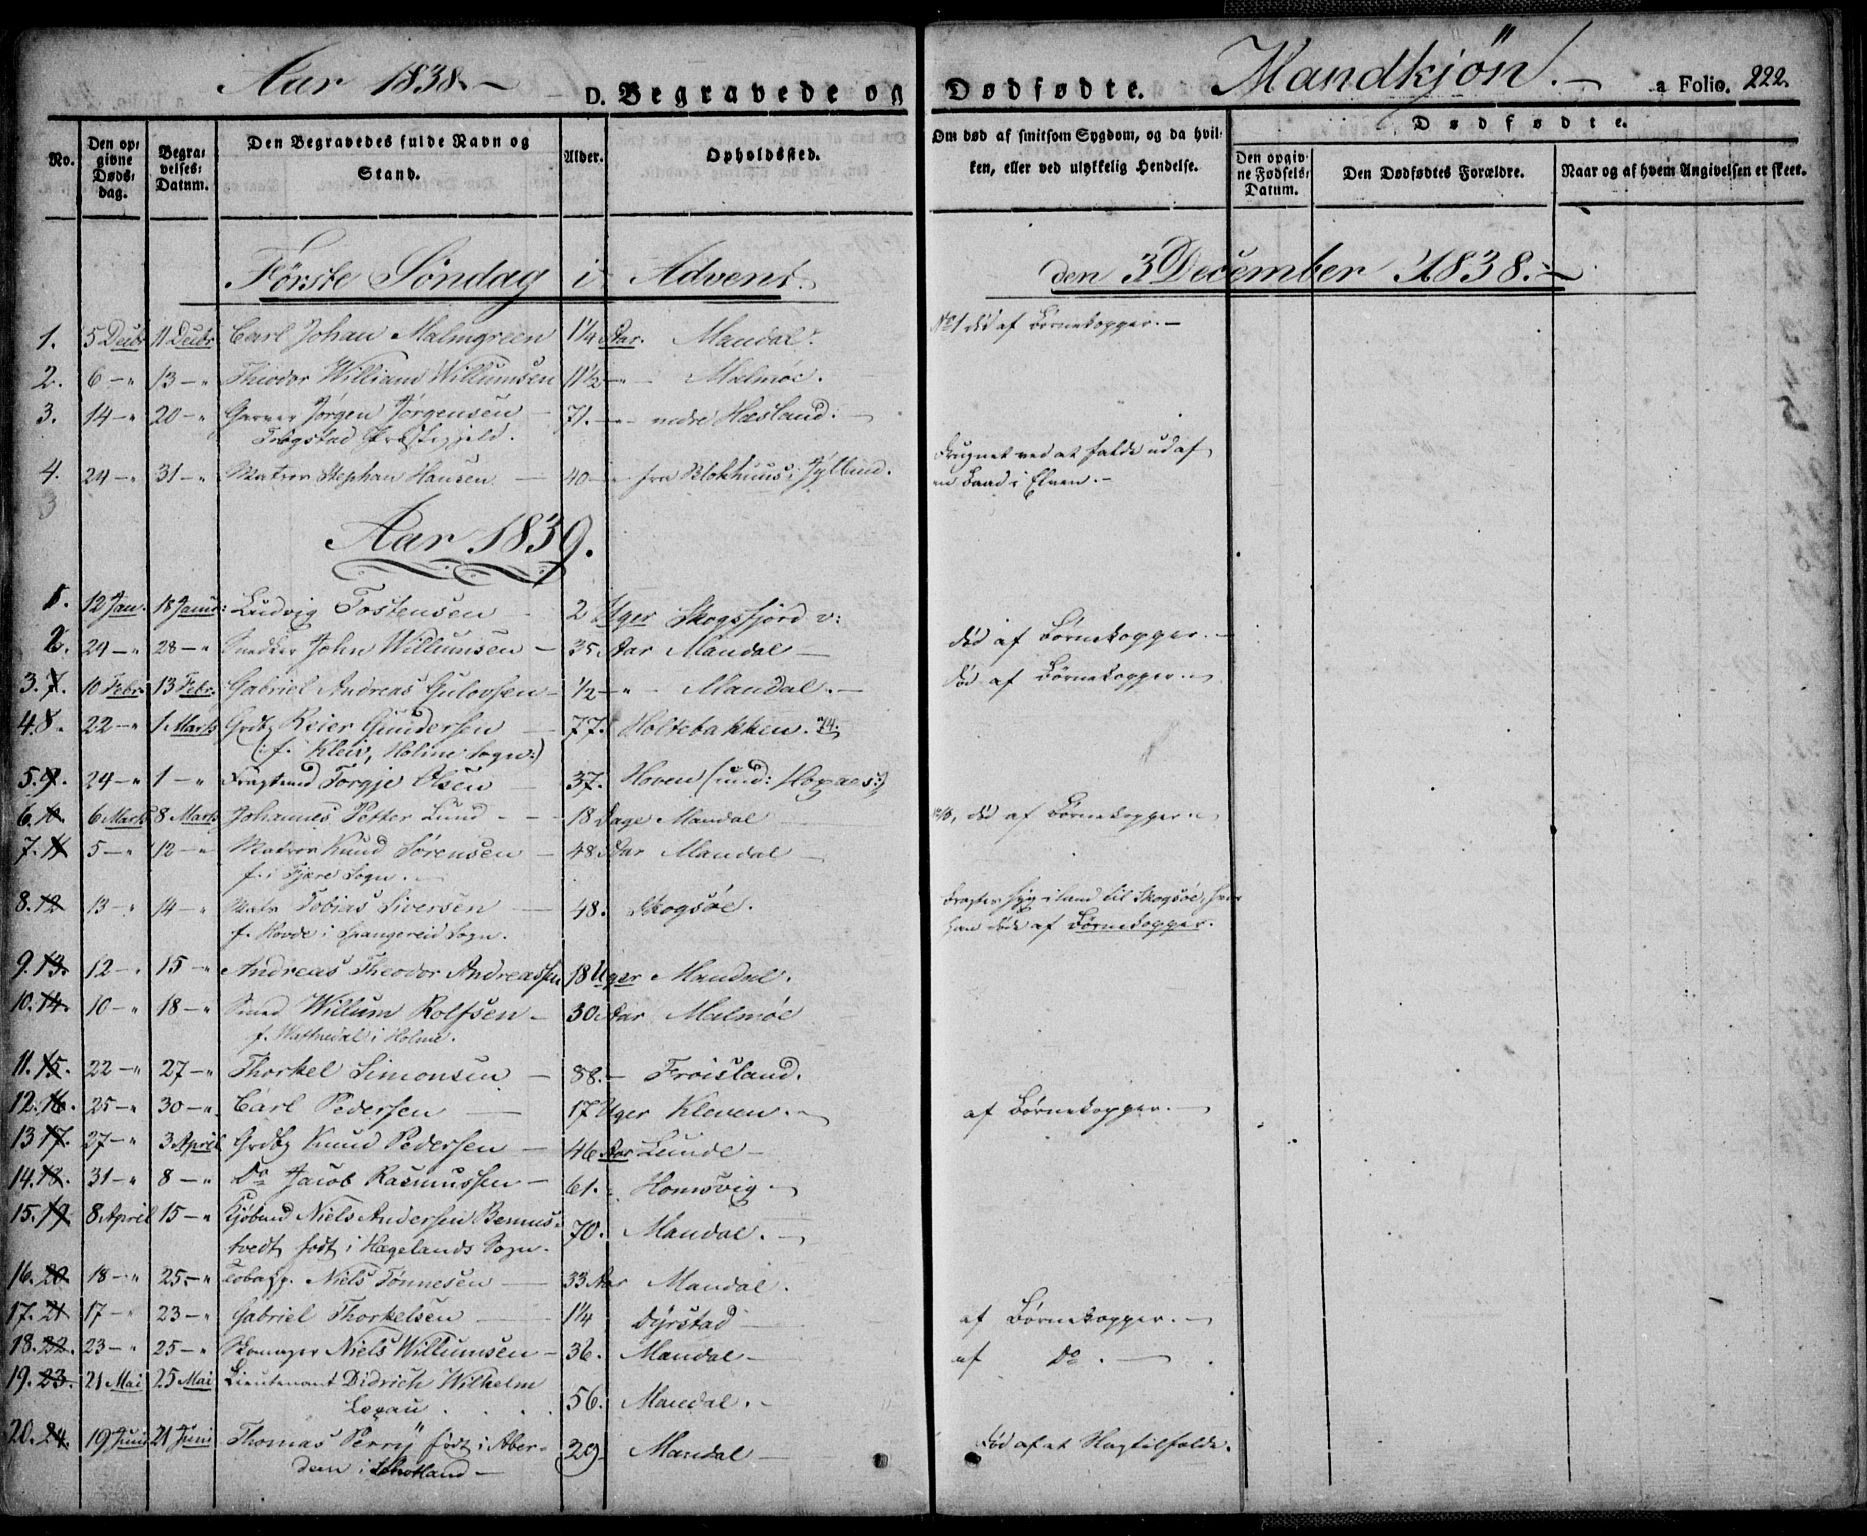 Aar 1838.
D. Begravede og Dødfødte.
Mandkjøn.
a Folio. 222.
No.
Den opgivne Dødsdag.
Begravelses-Datum.
Den Begravedes fulde Navn og Stand.
Alder.
Opholdssted.
Om død af smitsom Sygdom, og da hvilken, eller ved ulykkelig Hendelse.
Dødfødte.
Den opgivne Fødsels-Datum.
Den Dødfødtes Forældre.
Naar og af hvem Angivelsen er skeet.
Første Søndag i Advent. den 3 December 1838.
1. 5 Decbr 11 Decbr Carl Johan Malmgreen 1 1/4 Aar. Mandal. No 1 død af Børnekopper.
2. 6 - " 13 - " Theodor William Willumsen 11 1/2 - Malmøe.
3. 14 - " 20 - " Garver Jørgen Jørgensen 71. nedre Hæsland.
Trøgstad Præstegjeld.
4. 24 - " 31 - " Matros Stephan Hansen 40 fra Blokhuus i Jylland. Drugnet ved at falde ud af
en Baad i Elven.
Aar 1839.
1. 12 Jan. 18 Janr: Ludvig Tostensen 2 Uger Skogsfjord v:
2. 24 - " 28 - " Snedker John Willumsen 35 Aar Mandal død af Børnekopper.
3. 7. 10 Febr. 13 Febr. Gabriel Andreas Gulovsen 1/2 - " Mandal. død af Børnekopper.
4. 8. 22 - " 1 Marts Grdbr Reier Gundersen 77. Holtebakken. 74.
(: f. Kleiv, Holme Sogn:)
5. 9. 24 - " 1 - " Torgje Olsen 37. Hoven (und:
6. 10. 6 Marts 8 Marts Johannes Petter Lund 18 Dage Mandal død af Børnekopper.
7. 11 5 - " 12 - " Matros Knud Sørensen 48 Aar Mandal
f. i Fjære Sogn.
8. 12 13 - " 14 - " Matr Tobias Siversen 48. Skogsøe. bragtes syg i land til Skogsøe, hvor
f. Hovde i Spangereid Sogn. han døde af Børnekopper.
9. 13. 12 - " 15 - " Andreas Theodor Andreassen 18 Uger Mandal.
10. 14. 10 - " 18 - " Smed Willum Rolfsen 30 Aar Malmøe
f. i Holme.
11. 15. 22 - " 27 - " Thorkel Simonsen 88. Frøisland.
12. 16. 25 - " 30 - " Carl Pedersen 17 Uger Kleven. af Børnekopper.
13 17. 27 - " 3 April Grdbr Knud Pedersen 46 Aar Lunde
14. 18. 31 - " 8 - " Do Jacob Rasmussen 61. Homsvig
15. 19 8 April 15 - " Kjøbmd Niels Andersen Bennes-
tvedt født i Hægelands Sogn. 70. Mandal.
16. 20. 18 - " 25. - " Niels Tønnesen 33 Aar Mandal.
17. 21 17 - " 23 - " Gabriel Thorkelsen 1 1/4 Dyrstad af Børnekopper.
18. 22. 23 - " 25 - " Skomager Niels Willumsen 36. Mandal af Do.
19. 23. 21 Mai 25 Mai Lieutenant Didrich Wilhelm
Logau. 56. Mandal.
20. 24. 19 Juni 21 Juni Thomas Perry født i Aber-
deen i Schotland 29 Mandal Død af et Slagtilfælde.